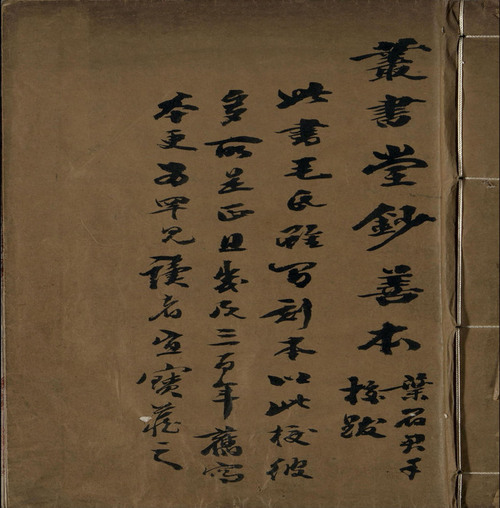 叢書堂鈔善本
葉石君手
校跋
此書毛氏雖有刻本以此校彼
多所是正且幾及三百年舊寫
本更為罕見讀者宜寶藏之